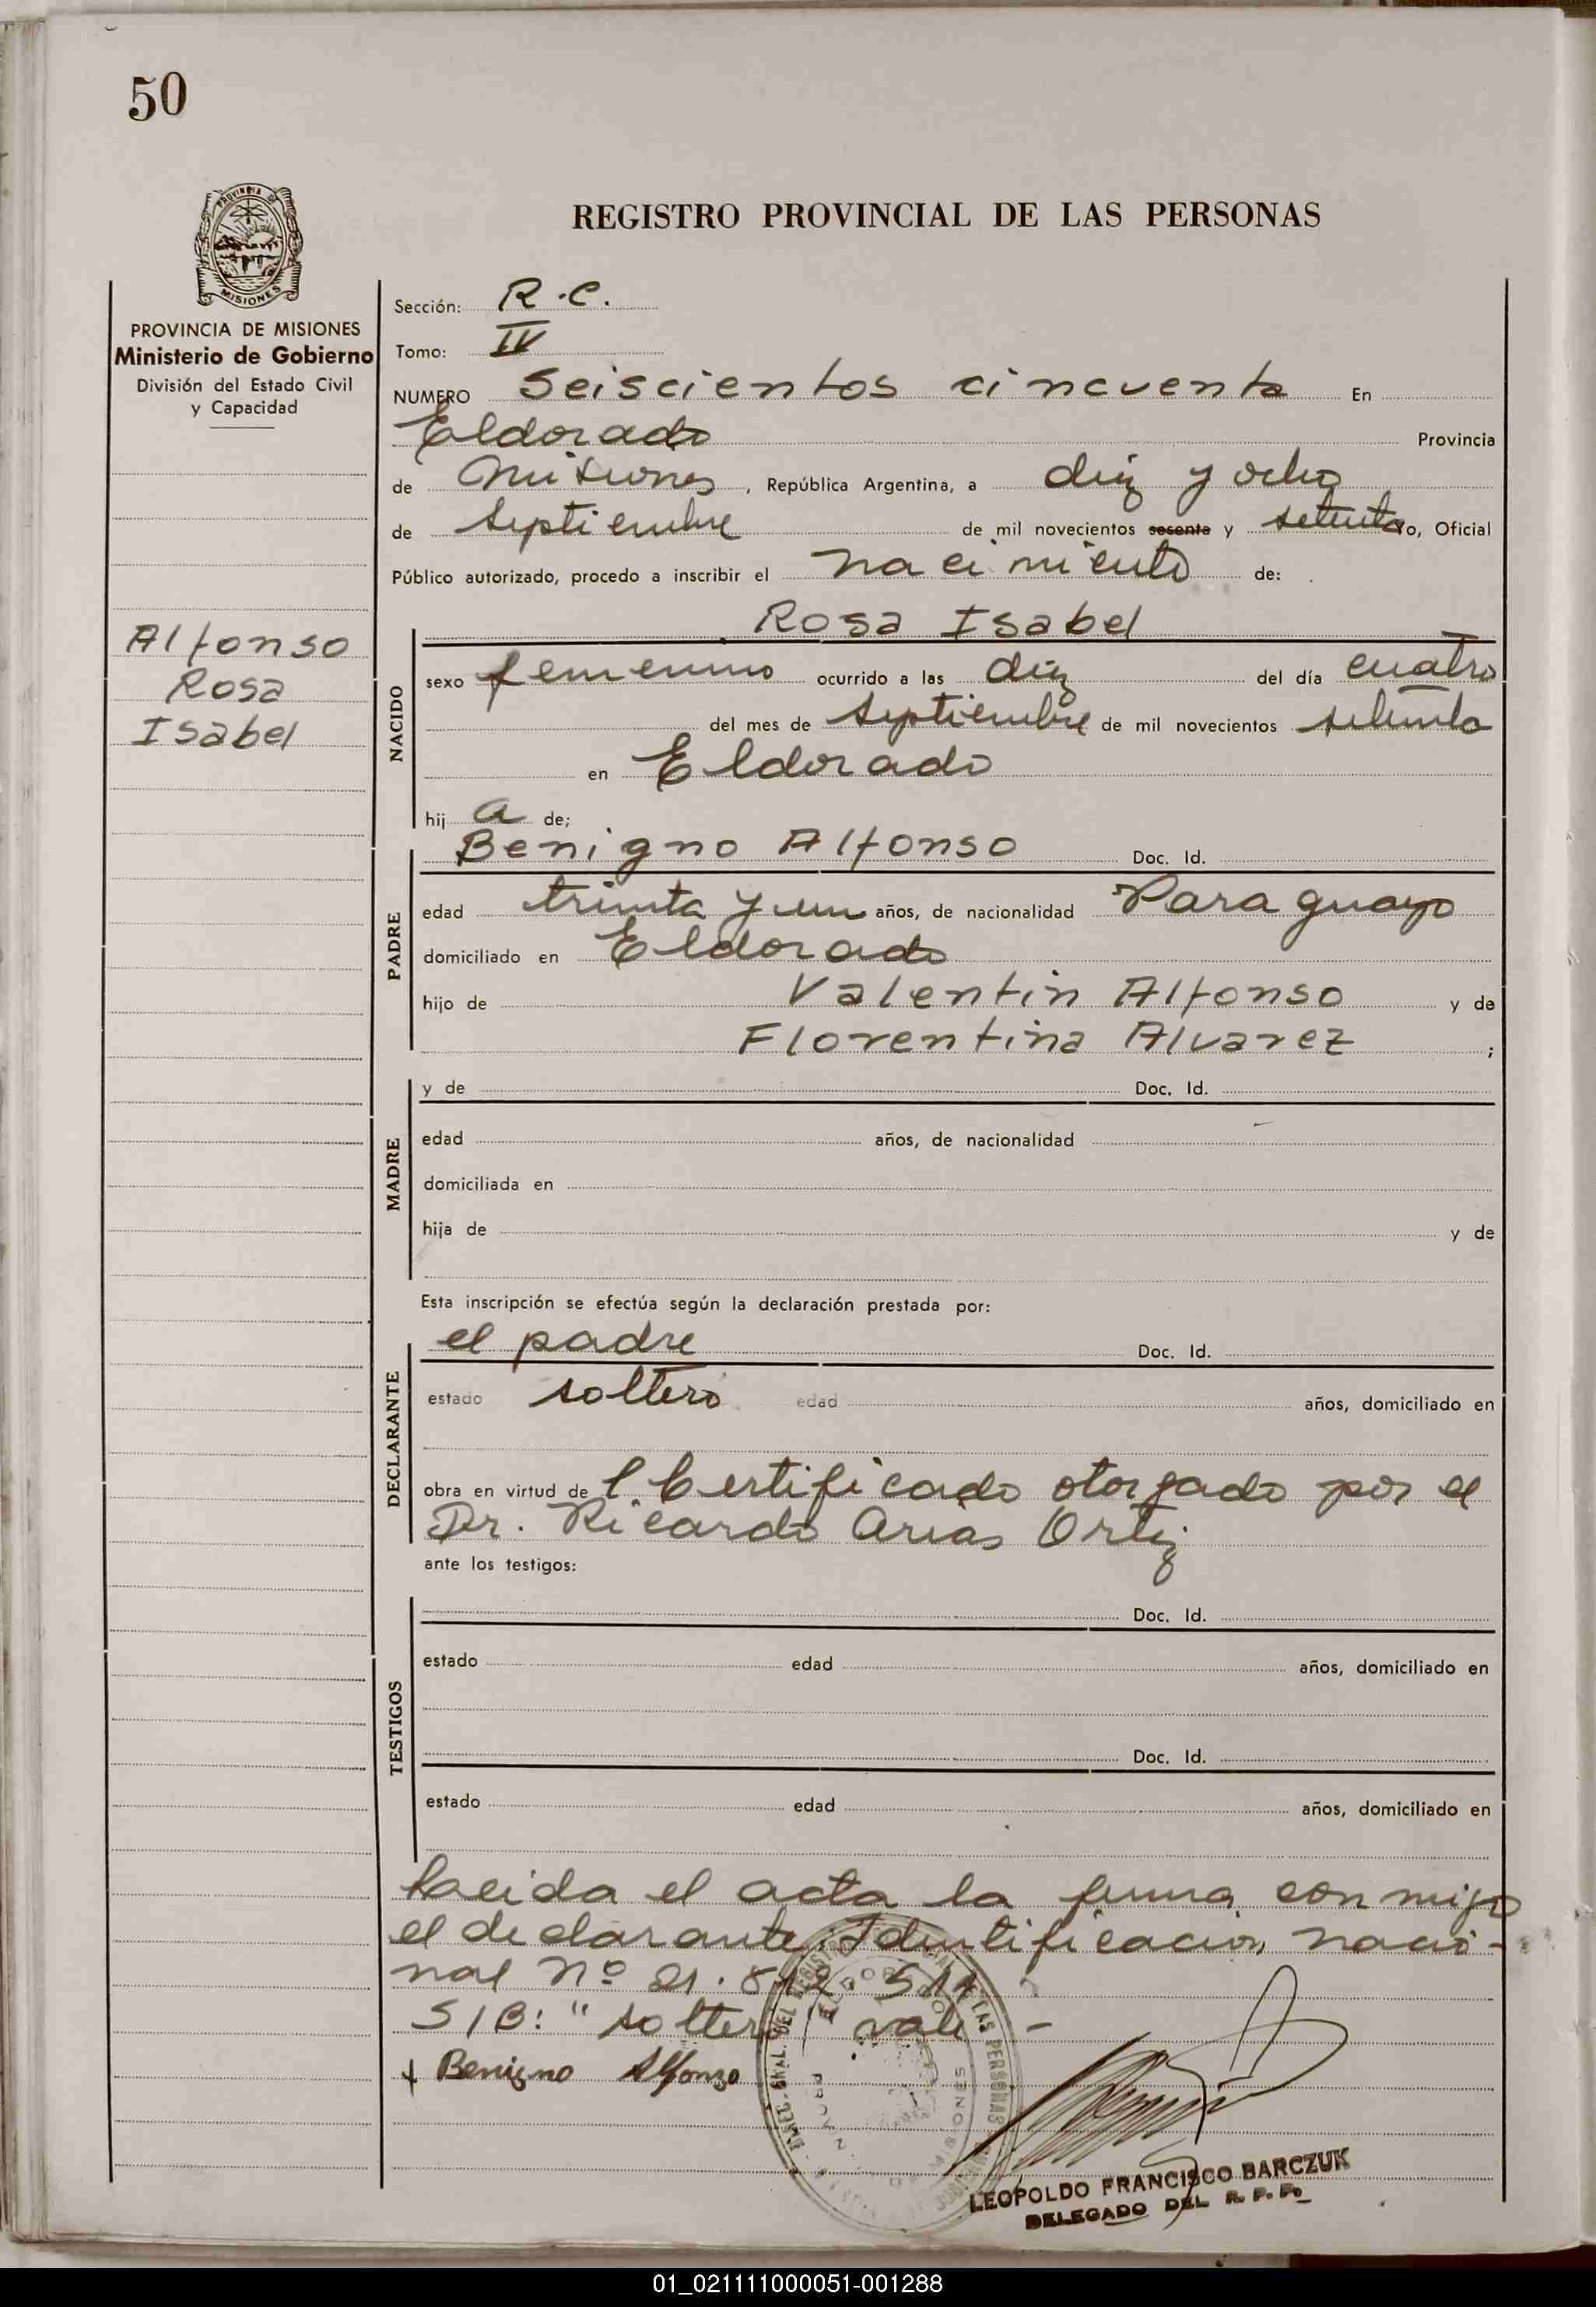 50
PROVINCIA DE
MISIONES
REGISTRO PROVINCIAL DE LAS PERSONAS
PROVINCIA DE MISIONES
Ministerio de Gobierno
División del Estado Civil
y Capacidad
Alfonso
Rosa
Isabel
Sección: R.C.
Tomo: IV
NUMERO Seiscientos cincuenta En
Eldorado Provincia
de Misiones, República Argentina, a diez y ocho
de Septiembre de mil novecientos sesenta y setenta yo, Oficial
Público autorizado, procedo a inscribir el nacimiento de:
Rosa Isabel
NACIDO
sexo femenino ocurrido a las diez del día cuatro
del mes de Septiembre de mil novecientos setenta
en Eldorado
hij a de;
Benigno Alfonso Doc. Id.
PADRE
edad treinta y un años, de nacionalidad Paraguayo
domiciliado en Eldorado
hijo de Valentin Alfonso y de
Florentina Alvarez ;
y de Doc. Id.
MADRE
edad años, de nacionalidad
domiciliada en
hija de y de
Esta inscripción se efectúa según la declaración prestada por:
el padre Doc. Id.
DECLARANTE
estado soltero edad años, domiciliado en
obra en virtud de l Certificado otorgado por el
Dr. Ricardo Arias Ortiz
ante los testigos:
Doc. Id.
TESTIGOS
estado edad años, domiciliado en
Doc. Id.
estado edad años, domiciliado en
Leida el acta la firma conmigo
el declarante. Identificación nacio-
nal Nº 21.
S/B: "soltero" vale -
+ Benigno Alfonzo
LEOPOLDO FRANCISCO BARCZUK
DELEGADO DEL R. P. P.
01_021111000051-001288